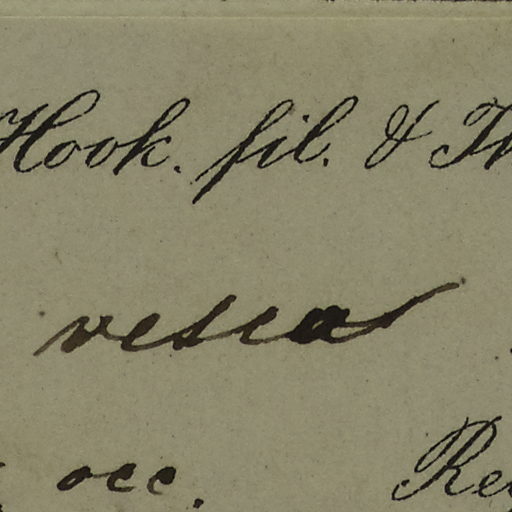 Hook. fil. & Th
vesca
occ.